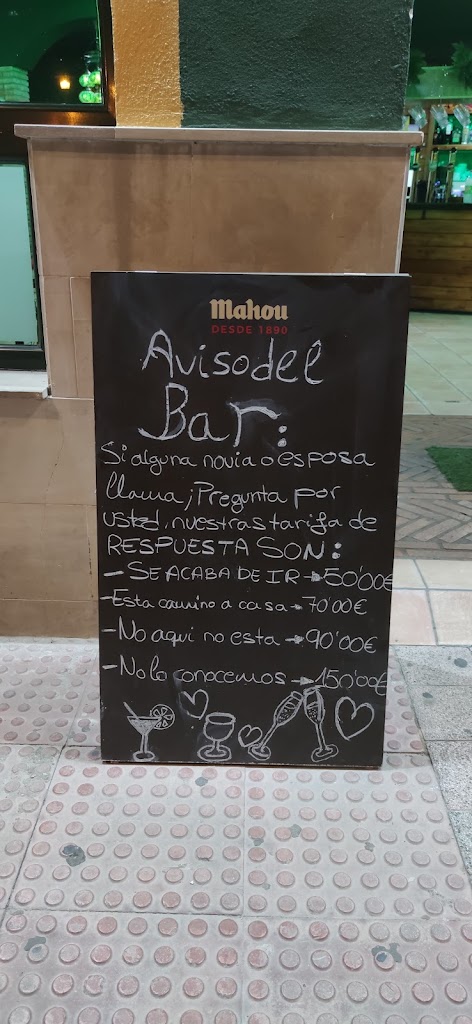 Mahou
DESDE 1890
Aviso del
Bar:
Si alguna novia o esposa
llama ¡Pregunta por
usted, nuestras tarifa de
RESPUESTA SON:
- SE ACABA DE IR → 50'00€
- Esta camino a casa → 70'00€
- No aqui no esta → 90'00€
- No lo conocemos → 150'00€